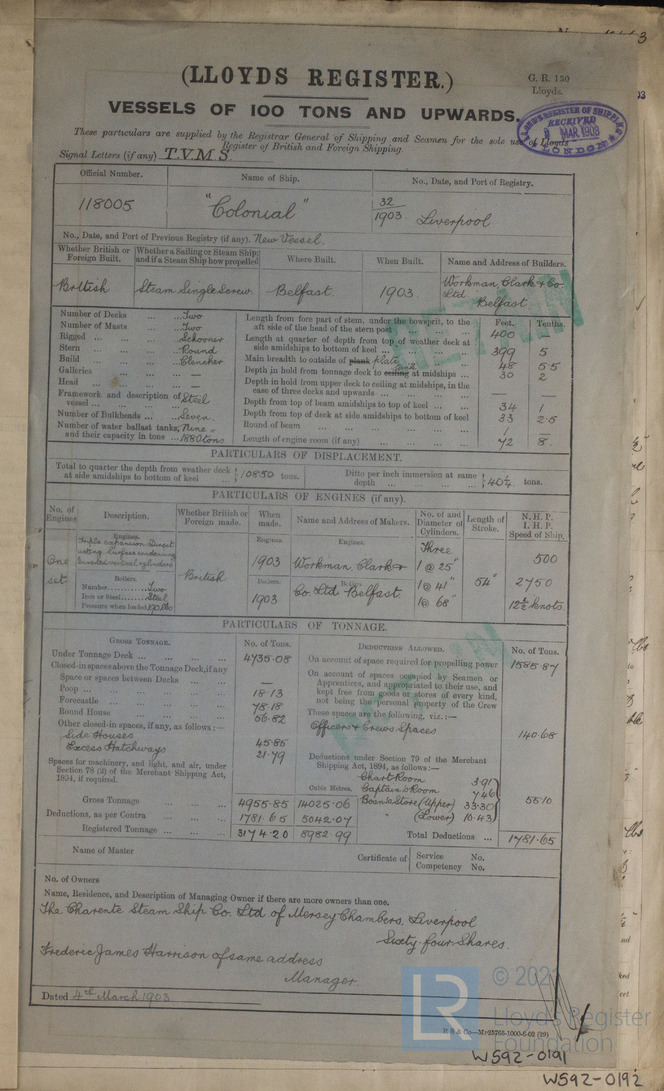 (LLOYDS REGISTER.)
G. R. 130
Lloyds.
VESSELS OF 100 TONS AND UPWARDS.
LLOYD'S REGISTER OF SHIPPING
RECEIVED
MAR 1903
LONDON
These particulars are supplied by the Registrar General of Shipping and Seamen for the sole use of Lloyds
Register of British and Foreign Shipping.
Signal Letters (if any) T.V.M.S
Official Number. Name of Ship. No., Date, and Port of Registry.
118005 "Colonial" 32/1903 Liverpool
No., Date, and Port of Previous Registry (if any). New Vessel.
Whether British or Foreign Built. Whether a Sailing or Steam Ship; and if a Steam Ship how propelled. Where Built. When Built. Name and Address of Builders.
British Steam Single Screw Belfast 1903 Workman, Clark & Co. Ltd Belfast
Number of Decks ... Two
Number of Masts ... Two
Rigged ... Schooner
Stem ... Round
Build ... Clencher
Galleries ... —
Head ... —
Framework and description of vessel ... Steel
Number of Bulkheads ... Seven
Number of water ballast tanks, Nine =
and their capacity in tons ... 1880 tons
Feet. Tenths.
Length from fore part of stem, under the bowsprit, to the aft side of the head of the stern post 400 —
Length at quarter of depth from top of weather deck at side amidships to bottom of keel ... 399 5
Main breadth to outside of plank plate 48 55
Depth in hold from tonnage deck to ceiling tank at midships ... 30 2
Depth in hold from upper deck to ceiling at midships, in the case of three decks and upwards ... — —
Depth from top of beam amidships to top of keel ... 34 1
Depth from top of deck at side amidships to bottom of keel 33 25
Round of beam ... 1 —
Length of engine room (if any) ... 72 8
PARTICULARS OF DISPLACEMENT.
Total to quarter the depth from weather deck at side amidships to bottom of keel 10850 tons. Ditto per inch immersion at same depth ... 40¼ tons.
PARTICULARS OF ENGINES (if any).
No. of Engines. Description. Whether British or Foreign made. When made. Name and Address of Makers. No. of and Diameter of Cylinders. Length of Stroke. N.H.P. I.H.P. Speed of Ship.
Engines. Engines. Engines.
Triple expansion Direct
acting Surface condensing
Inverted vertical cylinders
One set British 1903 Workman Clark & Three 1 @ 25" 500
Boilers. Boilers. Boilers.
Number ... Two
Iron or Steel ... Steel
Pressure when loaded 190 lbs
1903 Co. Ltd Belfast 1 @ 41" 1 @ 68" 54" 2750 12½ knots
PARTICULARS OF TONNAGE.
GROSS TONNAGE. No. of Tons. DEDUCTIONS ALLOWED. No. of Tons.
Under Tonnage Deck ... 4735.08
Closed-in spaces above the Tonnage Deck, if any
Space or spaces between Decks ... —
Poop ... 18.13
Forecastle ... 78.18
Round House ... 56.82
Other closed-in spaces, if any, as follows:—
Side Houses 45.85
Excess Hatchways 21.79
Spaces for machinery, and light, and air, under Section 78 (2) of the Merchant Shipping Act, 1894, if required.
On account of space required for propelling power 1585.87
On account of spaces occupied by Seamen or Apprentices, and appropriated to their use, and kept free from goods or stores of every kind, not being the personal property of the Crew
These spaces are the following, viz.:—
Officers & Crews Spaces 140.68
Deductions under Section 79 of the Merchant Shipping Act, 1894, as follows:—
Chart Room 3.91
Cubic Metres. Captain's Room 7.46
Boats'n Store (Upper) 33.30 55.10
" (Lower) 10.43
Gross Tonnage ... 4955.85 14025.06
Deductions, as per Contra ... 1781.65 5042.07
Registered Tonnage ... 3174.20 8982.99
Total Deductions ... 1781.65
Name of Master Certificate of Service No.
Competency No.
No. of Owners
Name, Residence, and Description of Managing Owner if there are more owners than one.
The Charente Steam Ship Co. Ltd of Mersey Chambers, Liverpool
Sixty four Shares.
Frederic James Harrison of same address
Manager.
Dated 4th March 1903
LR
© 202
Lloyd's Register
Foundation
W592-0191
W592-0192